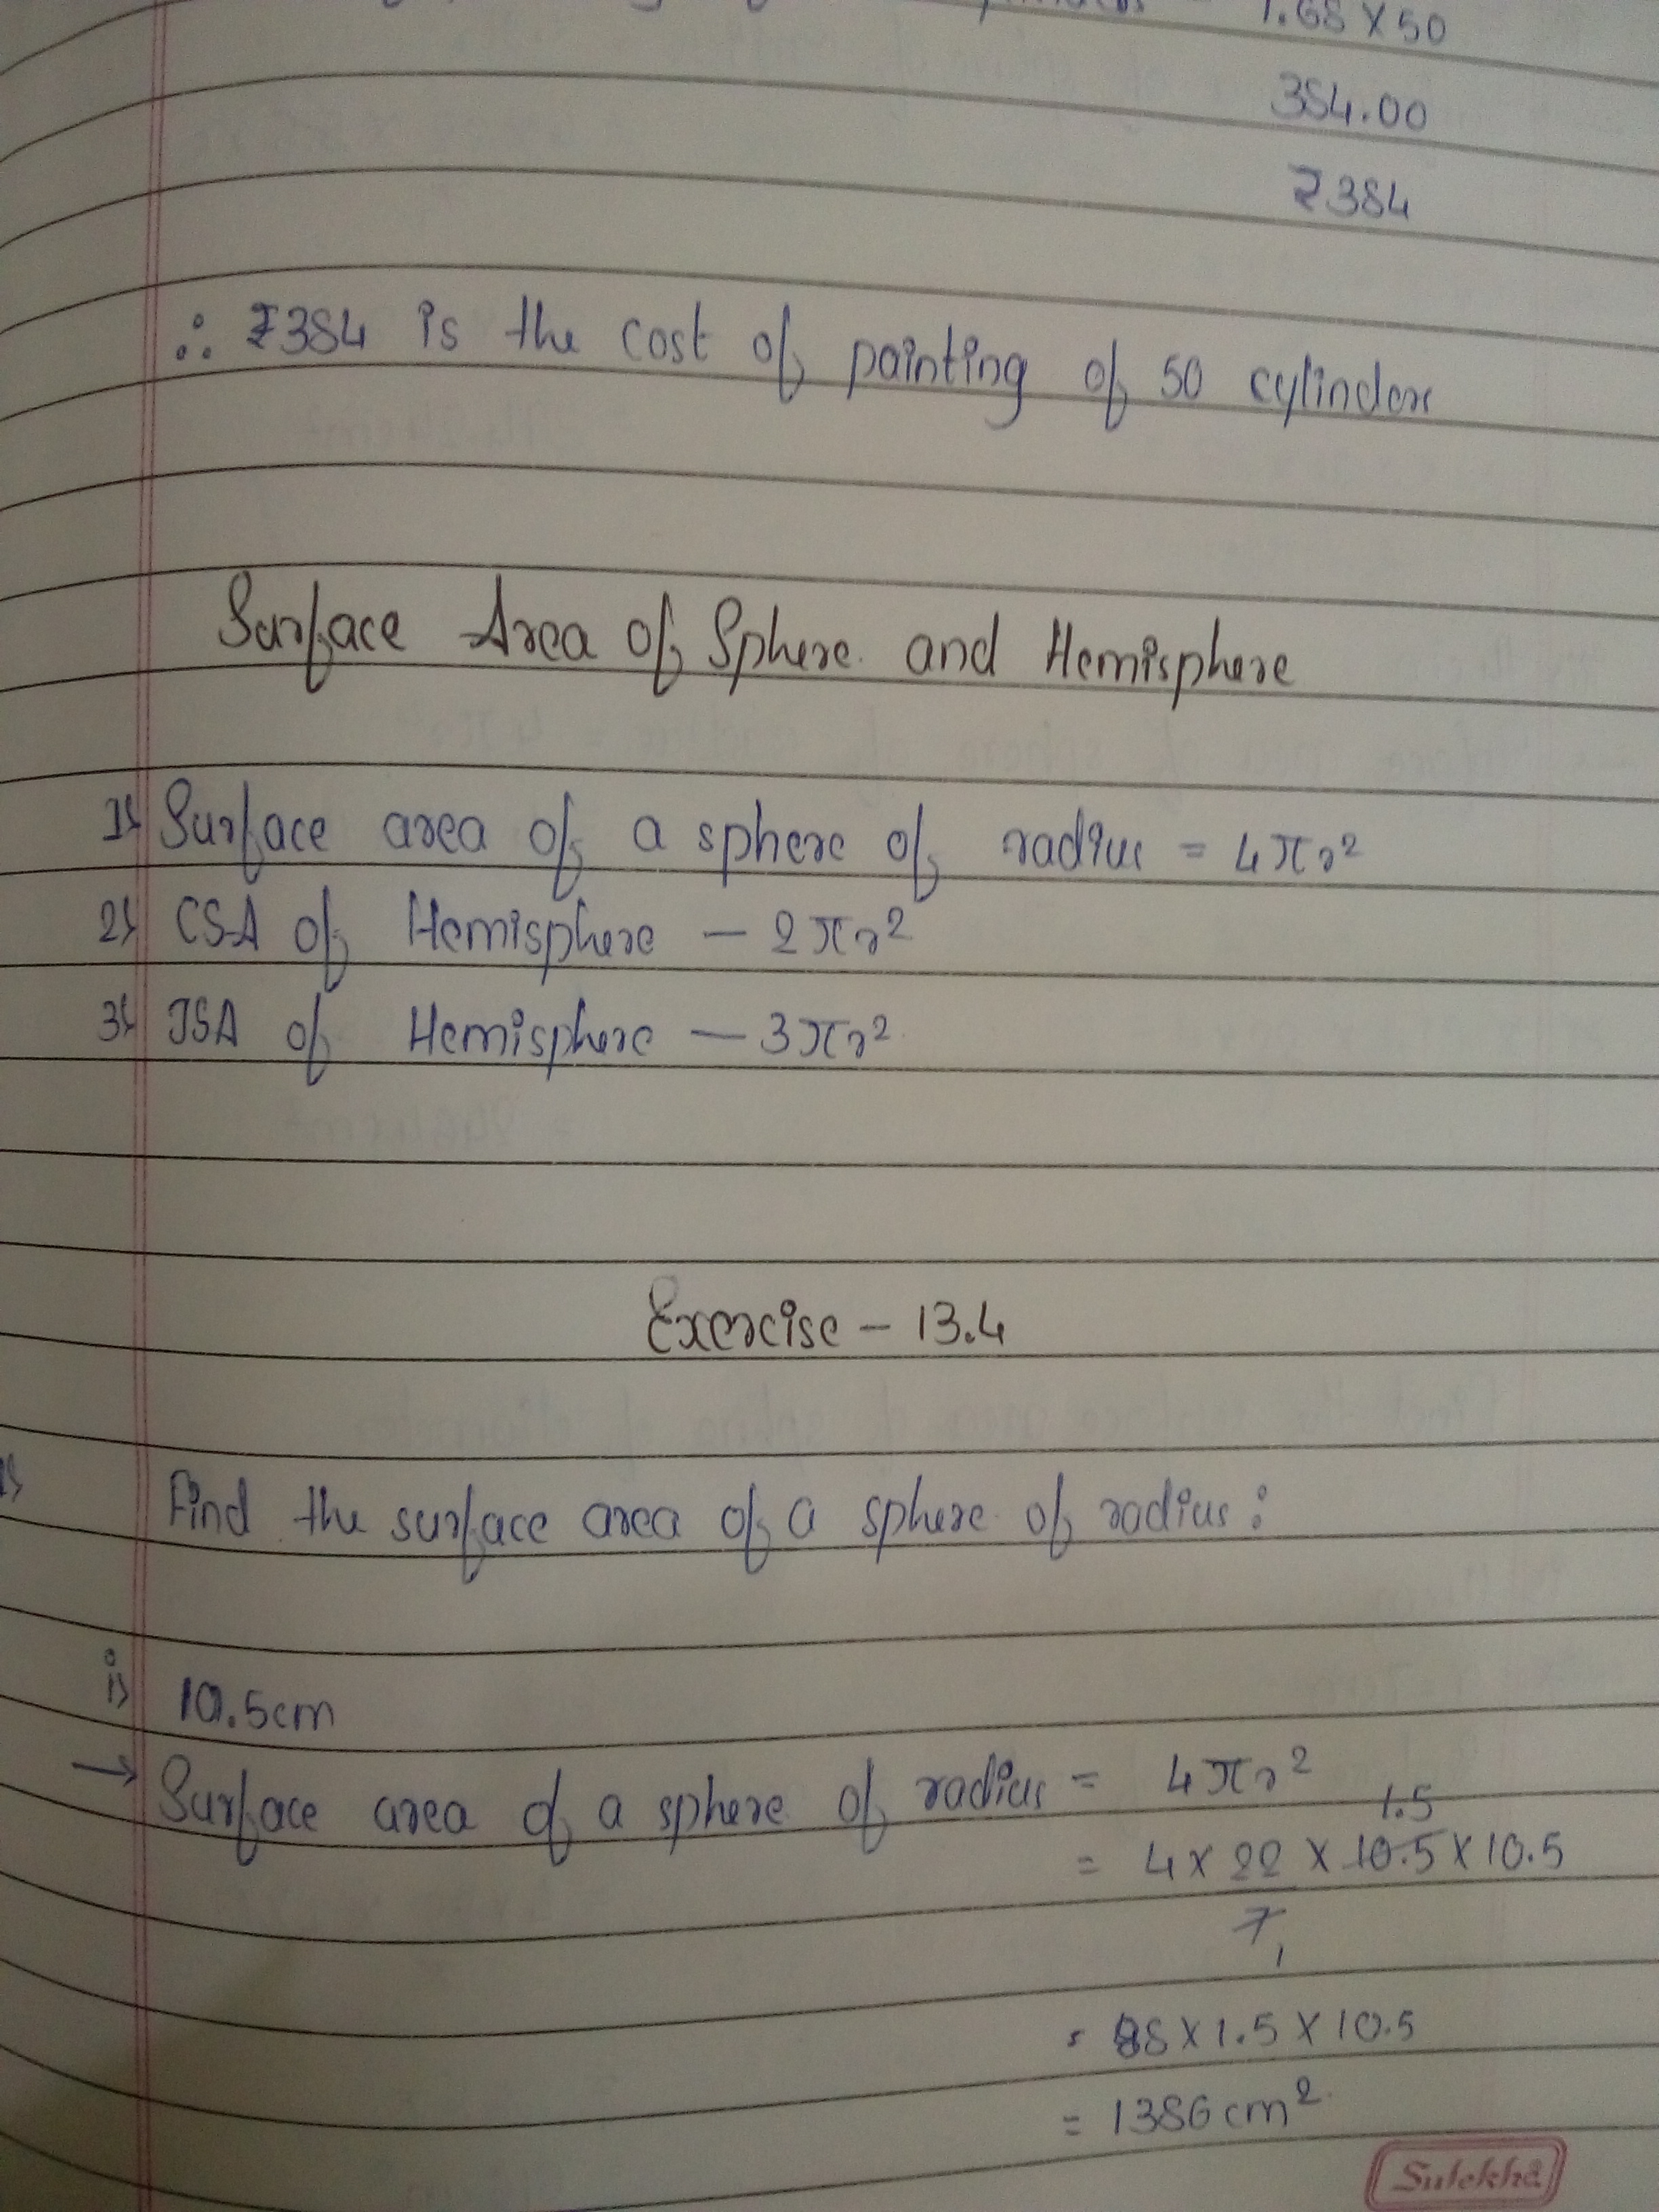 7.68 X 50
384.00
₹384
∴ ₹384 is the cost of painting of 50 cylinder
Surface Area of Sphere and Hemisphere
1} Surface area of a sphere of radius = 4πr²
2} CSA of Hemisphere — 2πr²
3} TSA of Hemisphere — 3πr²
Exercise - 13.4
1} Find the surface area of a sphere of radius:
i} 10.5cm
→ Surface area of a sphere of radius = 4πr²
1.5
= 4 X 22 X 10.5 X 10.5
7 1
= 88 X 1.5 X 10.5
= 1386 cm²
Sulekha